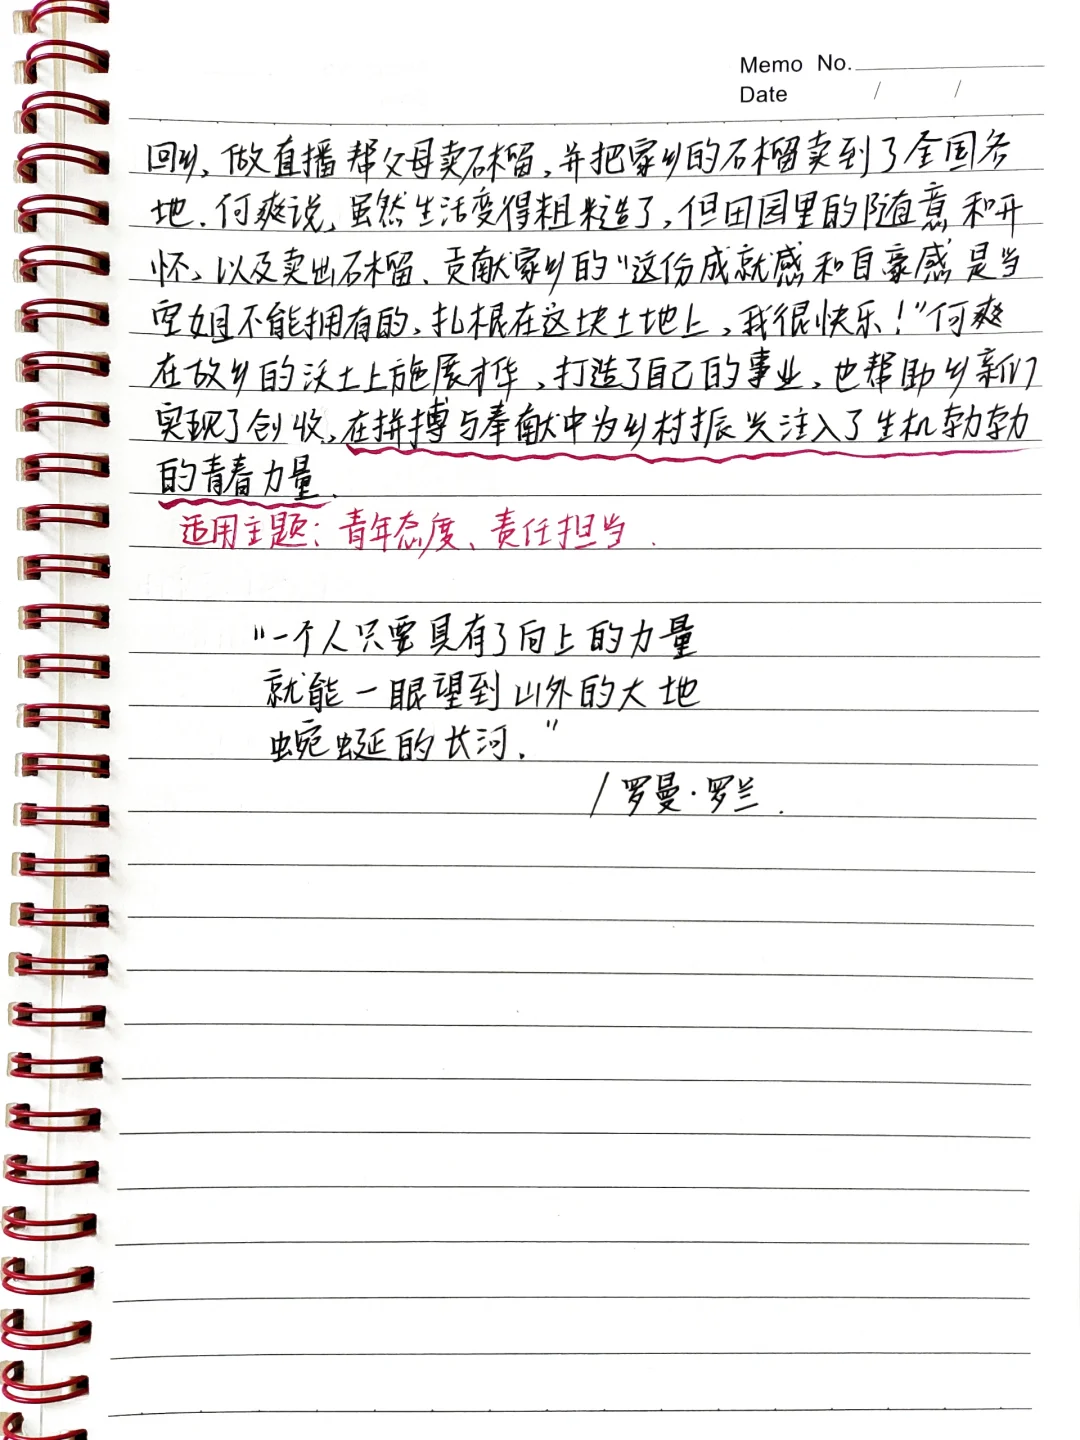 Memo No.
Date / /
回乡,做直播帮父母卖石榴,并把家乡的石榴卖到了全国各
地.何爽说,虽然生活变得粗糙了,但田园里的随意和开
怀、以及卖出石榴、贡献家乡的"这份成就感和自豪感是当
空姐不能拥有的,扎根在这块土地上,我很快乐!"何爽
在故乡的沃土上施展才华,打造了自己的事业,也帮助乡亲们
实现了创收,在拼搏与奉献中为乡村振兴注入了生机勃勃
的青春力量.
适用主题:青年态度、责任担当.
"一个人只要具有了向上的力量
就能一眼望到山外的大地
蜿蜒的长河."
/罗曼·罗兰.